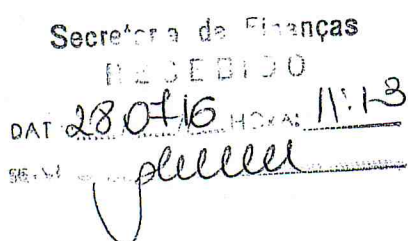 Secretaria de Finanças
RECEBIDO
DAT 28 07 16 HORA: 11:13